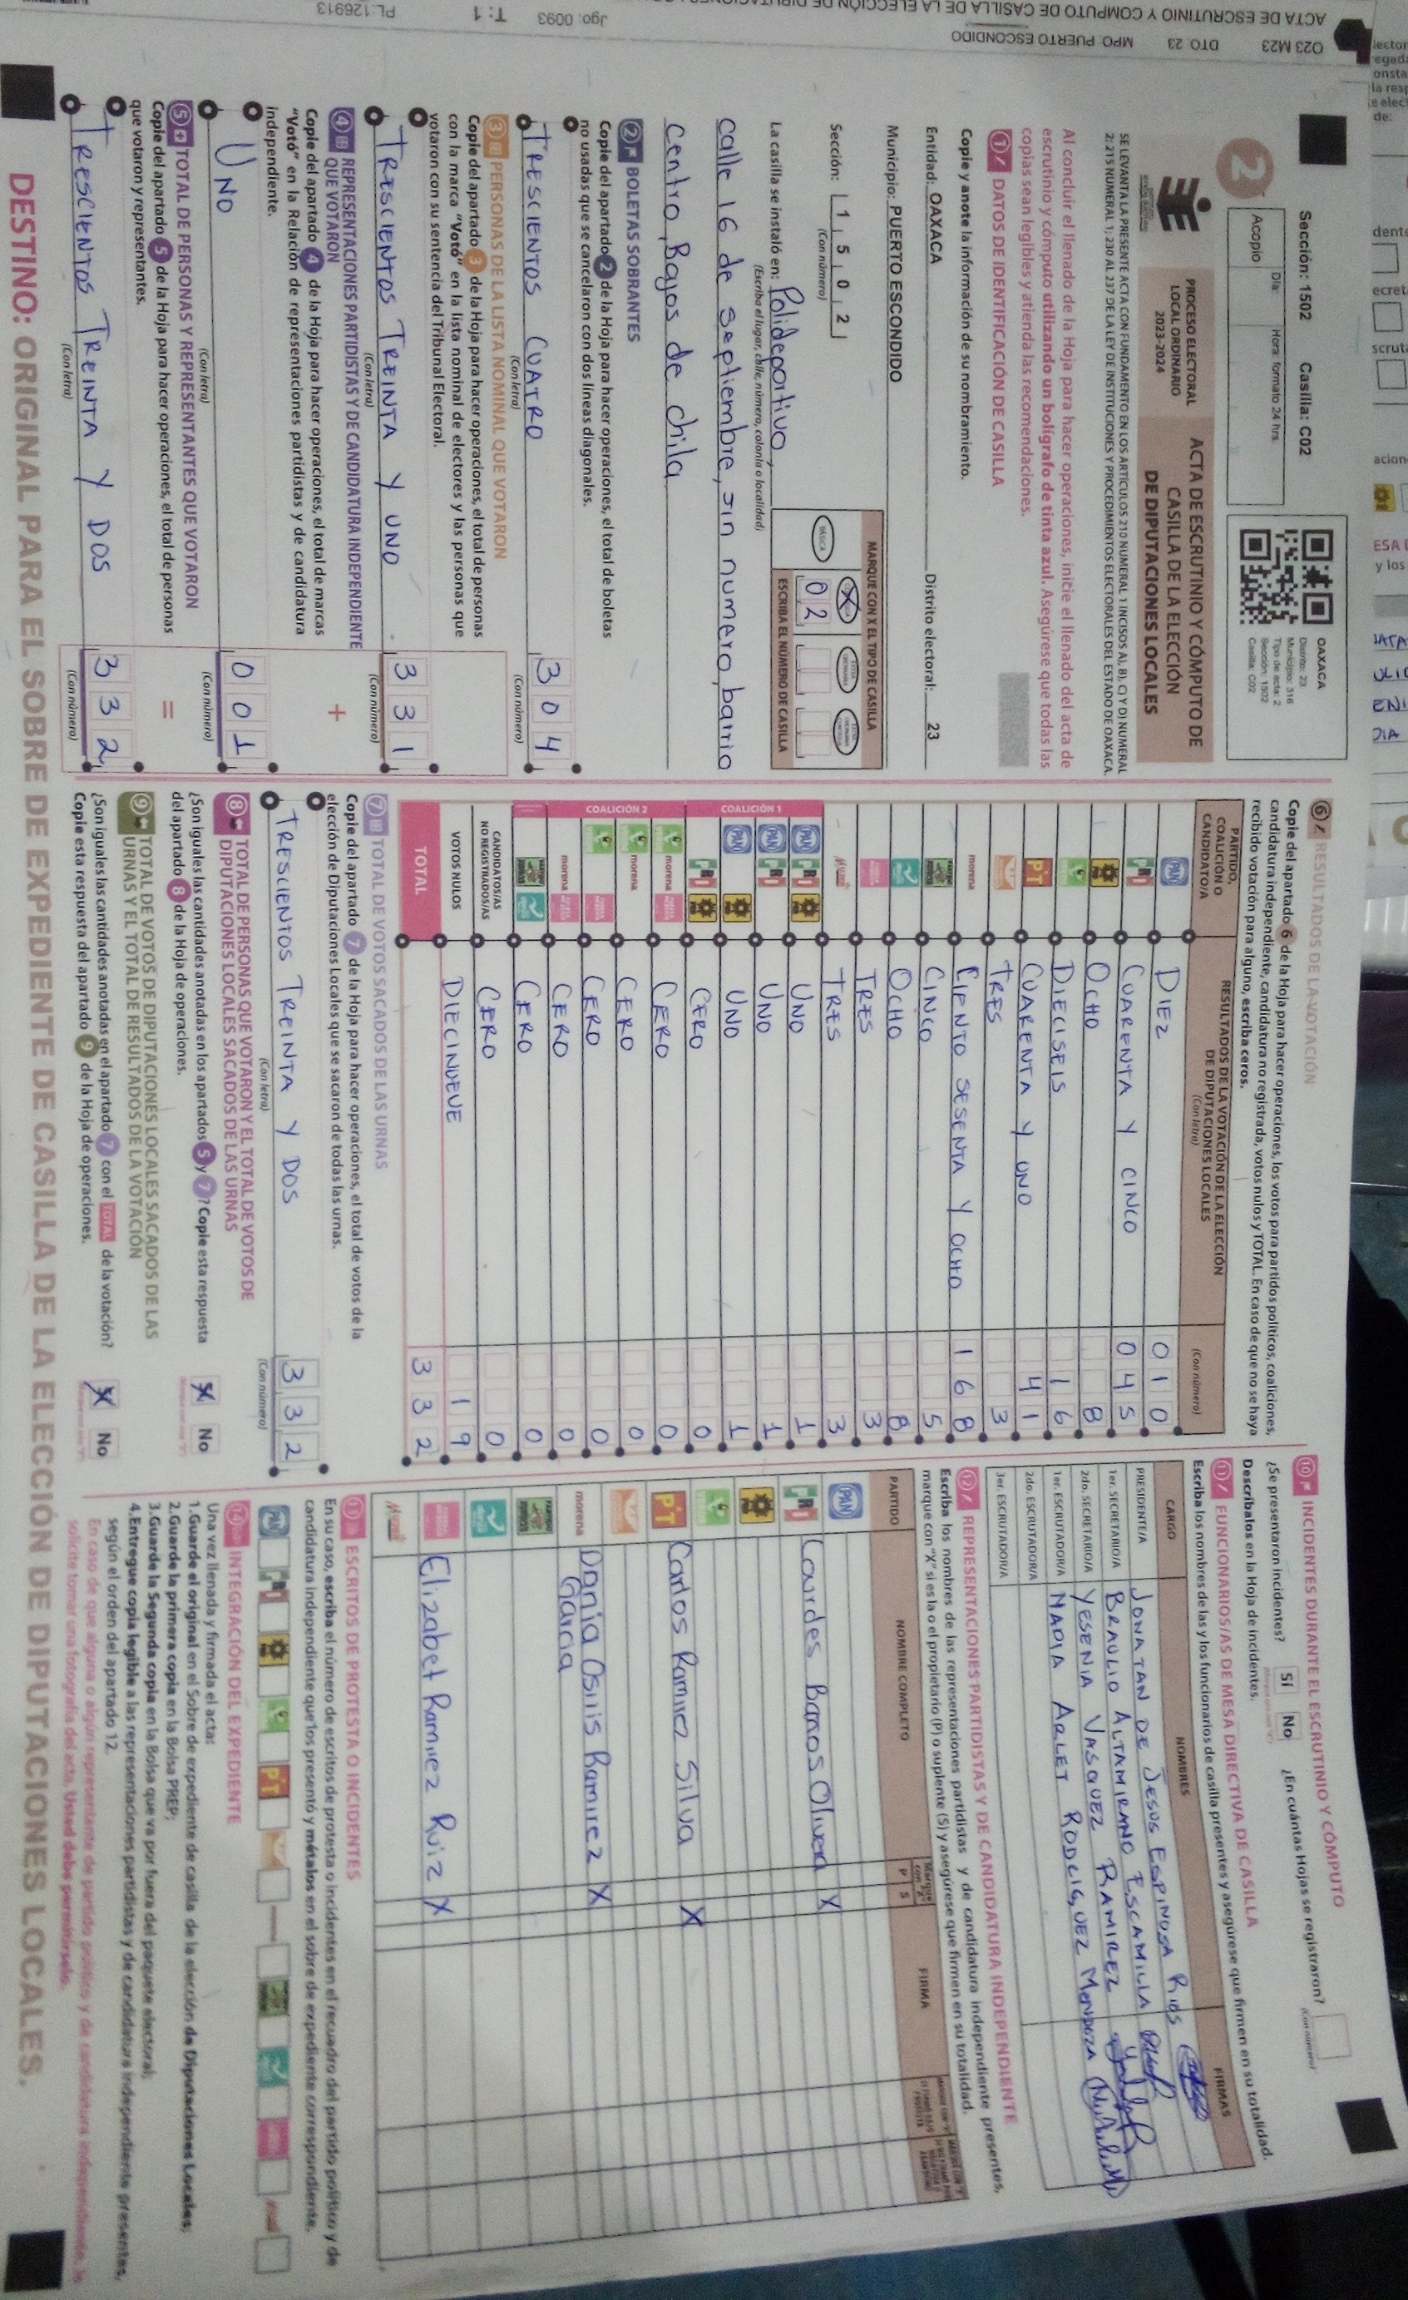 Sección: 1502 Casilla: C02
2
Acopio
Día:
Hora: formato 24 hrs.
OAXACA
Distrito: 23
Municipio: 316
Tipo de acta: 2
Sección: 1502
Casilla: C02
PROCESO ELECTORAL
LOCAL ORDINARIO
2023-2024
ACTA DE ESCRUTINIO Y CÓMPUTO DE
CASILLA DE LA ELECCIÓN
DE DIPUTACIONES LOCALES
SE LEVANTA LA PRESENTE ACTA CON FUNDAMENTO EN LOS ARTÍCULOS 210 NUMERAL 1 INCISOS A), B), C) Y D) NUMERAL
2; 215 NUMERAL 1; 230 AL 237 DE LA LEY DE INSTITUCIONES Y PROCEDIMIENTOS ELECTORALES DEL ESTADO DE OAXACA.
Al concluir el llenado de la Hoja para hacer operaciones, inicie el llenado del acta de
escrutinio y cómputo utilizando un bolígrafo de tinta azul. Asegúrese que todas las
copias sean legibles y atienda las recomendaciones.
1 DATOS DE IDENTIFICACIÓN DE CASILLA
Copie y anote la información de su nombramiento.
Entidad: OAXACA Distrito electoral: 23
Municipio: PUERTO ESCONDIDO
Sección: 1 5 0 2
(Con número)
MARQUE CON X EL TIPO DE CASILLA
BÁSICA
02
ESCRIBA EL NÚMERO DE CASILLA
La casilla se instaló en: Polideportivo,
(Escriba el lugar, calle, número, colonia o localidad)
calle 16 de septiembre, sin numero, barrio
centro, Bajos de chila
2 BOLETAS SOBRANTES
Copie del apartado 2 de la Hoja para hacer operaciones, el total de boletas
no usadas que se cancelaron con dos líneas diagonales.
TRESCIENTOS CUATRO 304
(Con letra) (Con número)
3 PERSONAS DE LA LISTA NOMINAL QUE VOTARON
Copie del apartado 3 de la Hoja para hacer operaciones, el total de personas
con la marca "Votó" en la lista nominal de electores y las personas que
votaron con su sentencia del Tribunal Electoral.
TRESCIENTOS TREINTA Y UNO 331
(Con letra) (Con número)
4 REPRESENTACIONES PARTIDISTAS Y DE CANDIDATURA INDEPENDIENTE
QUE VOTARON
Copie del apartado 4 de la Hoja para hacer operaciones, el total de marcas
"Votó" en la Relación de representaciones partidistas y de candidatura
independiente.
+
UNO 001
(Con letra) (Con número)
5 TOTAL DE PERSONAS Y REPRESENTANTES QUE VOTARON
Copie del apartado 5 de la Hoja para hacer operaciones, el total de personas
que votaron y representantes.
=
TRESCIENTOS TREINTA Y DOS 332
(Con letra) (Con número)
6 RESULTADOS DE LA VOTACIÓN
Copie del apartado 6 de la Hoja para hacer operaciones, los votos para partidos políticos, coaliciones,
candidatura independiente, candidatura no registrada, votos nulos y TOTAL. En caso de que no se haya
recibido votación para alguno, escriba ceros.
PARTIDO,
COALICIÓN O
CANDIDATO/A
RESULTADOS DE LA VOTACIÓN DE LA ELECCIÓN
DE DIPUTACIONES LOCALES
(Con letra)
(Con número)
PAN DIEZ 010
PRI CUARENTA Y CINCO 045
OCHO 8
DIECISEIS 16
PT CUARENTA Y UNO 41
TRES 3
morena CIENTO SESENTA Y OCHO 168
CINCO 5
OCHO 8
TRES 3
TRES 3
COALICIÓN 1
PAN PRI UNO 1
PAN PRI UNO 1
PAN UNO 1
PRI CERO 0
COALICIÓN 2
morena CERO 0
morena CERO 0
CERO 0
morena CERO 0
CERO 0
CANDIDATOS/AS
NO REGISTRADOS/AS CERO 0
VOTOS NULOS DIECINUEVE 19
TOTAL 332
7 TOTAL DE VOTOS SACADOS DE LAS URNAS
Copie del apartado 7 de la Hoja para hacer operaciones, el total de votos de la
elección de Diputaciones Locales que se sacaron de todas las urnas.
TRESCIENTOS TREINTA Y DOS 332
(Con letra) (Con número)
8 TOTAL DE PERSONAS QUE VOTARON Y EL TOTAL DE VOTOS DE
DIPUTACIONES LOCALES SACADOS DE LAS URNAS
¿Son iguales las cantidades anotadas en los apartados 5 y 7? Copie esta respuesta
del apartado 8 de la Hoja de operaciones.
X No
9 TOTAL DE VOTOS DE DIPUTACIONES LOCALES SACADOS DE LAS
URNAS Y EL TOTAL DE RESULTADOS DE LA VOTACIÓN
¿Son iguales las cantidades anotadas en el apartado 7 con el TOTAL de la votación?
Copie esta respuesta del apartado 9 de la Hoja de operaciones.
X No
10 INCIDENTES DURANTE EL ESCRUTINIO Y CÓMPUTO
¿Se presentaron incidentes? Sí No ¿En cuántas Hojas se registraron?
Descríbalos en la Hoja de incidentes.
11 FUNCIONARIOS/AS DE MESA DIRECTIVA DE CASILLA
Escriba los nombres de las y los funcionarios de casilla presentes y asegúrese que firmen en su totalidad.
CARGO NOMBRES FIRMAS
PRESIDENTE/A JONATAN DE JESUS ESPINOSA RIOS
1er. SECRETARIO/A BRAULIO ALTAMIRANO ESCAMILLA
2do. SECRETARIO/A YESENIA VASQUEZ RAMIREZ
1er. ESCRUTADOR/A NADIA ARLET RODRIGUEZ MENDOZA
2do. ESCRUTADOR/A
3er. ESCRUTADOR/A
12 REPRESENTACIONES PARTIDISTAS Y DE CANDIDATURA INDEPENDIENTE
Escriba los nombres de las representaciones partidistas y de candidatura independiente presentes,
marque con "X" si es la o el propietario (P) o suplente (S) y asegúrese que firmen en su totalidad.
PARTIDO NOMBRE COMPLETO P S FIRMA
PAN
PRI Lourdes Banos Olivera X
PT Carlos Ramirez Silva X
morena Dania Osiris Ramirez
Garcia X
Elizabet Ramirez Ruiz X
13 ESCRITOS DE PROTESTA O INCIDENTES
En su caso, escriba el número de escritos de protesta o incidentes en el recuadro del partido político y de
candidatura independiente que los presentó y métalos en el sobre de expediente correspondiente.
14 INTEGRACIÓN DEL EXPEDIENTE
Una vez llenada y firmada el acta:
1.Guarde el original en el Sobre de expediente de casilla de la elección de Diputaciones Locales;
2.Guarde la primera copia en la Bolsa PREP;
3.Guarde la Segunda copia en la Bolsa que va por fuera del paquete electoral;
4.Entregue copia legible a las representaciones partidistas y de candidatura independiente presentes,
según el orden del apartado 12.
En caso de que alguna o algún representante de partido político y de candidatura independiente, le
solicite tomar una fotografía del acta, Usted debe permitírselo.
DESTINO: ORIGINAL PARA EL SOBRE DE EXPEDIENTE DE CASILLA DE LA ELECCIÓN DE DIPUTACIONES LOCALES.
O23 M23 DTO: 23 MPO: PUERTO ESCONDIDO
ACTA DE ESCRUTINIO Y COMPUTO DE CASILLA DE LA ELECCIÓN DE
Jgo: 0093 T: 1 PL: 126913